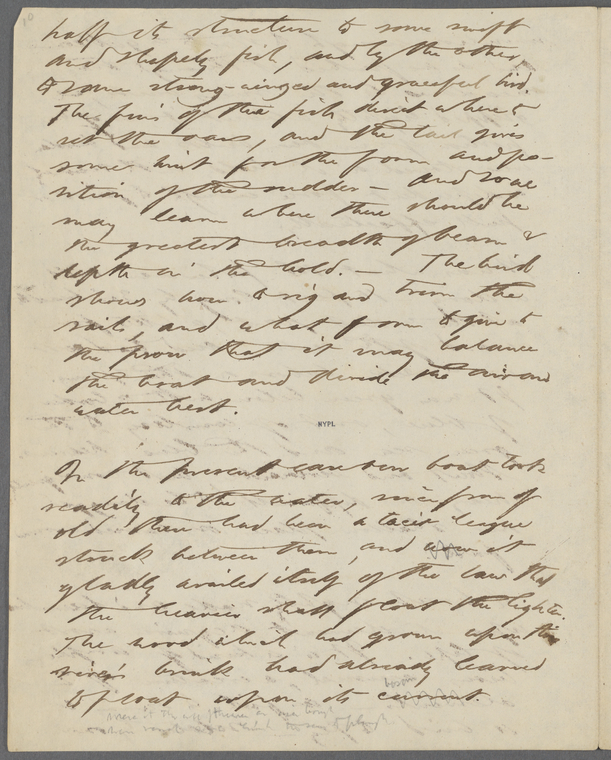 half its structure to some swift
and shapely fish, and by the other
to some strong-winged and graceful bird.
The fins of the fish direct where to
set the oars, and the tail gives
some hint for the form and po-
sition of the rudder — And so we
may learn where there should be
the greatest breadth of beam &
depth in the hold. — The bird
shows how to rig and trim the
sails, and what form to give to
the prow that it may balance
the boat and divide the air and
water best.
NYPL
In the present case our boat took
readily to the water, since from of
old there had been a tacit league
struck between them, and now it
gladly availed itself of the law that
the heavier shall float the lighter.
The wood which had grown upon the
river's brink had already learned
bosom
to float upon its current.